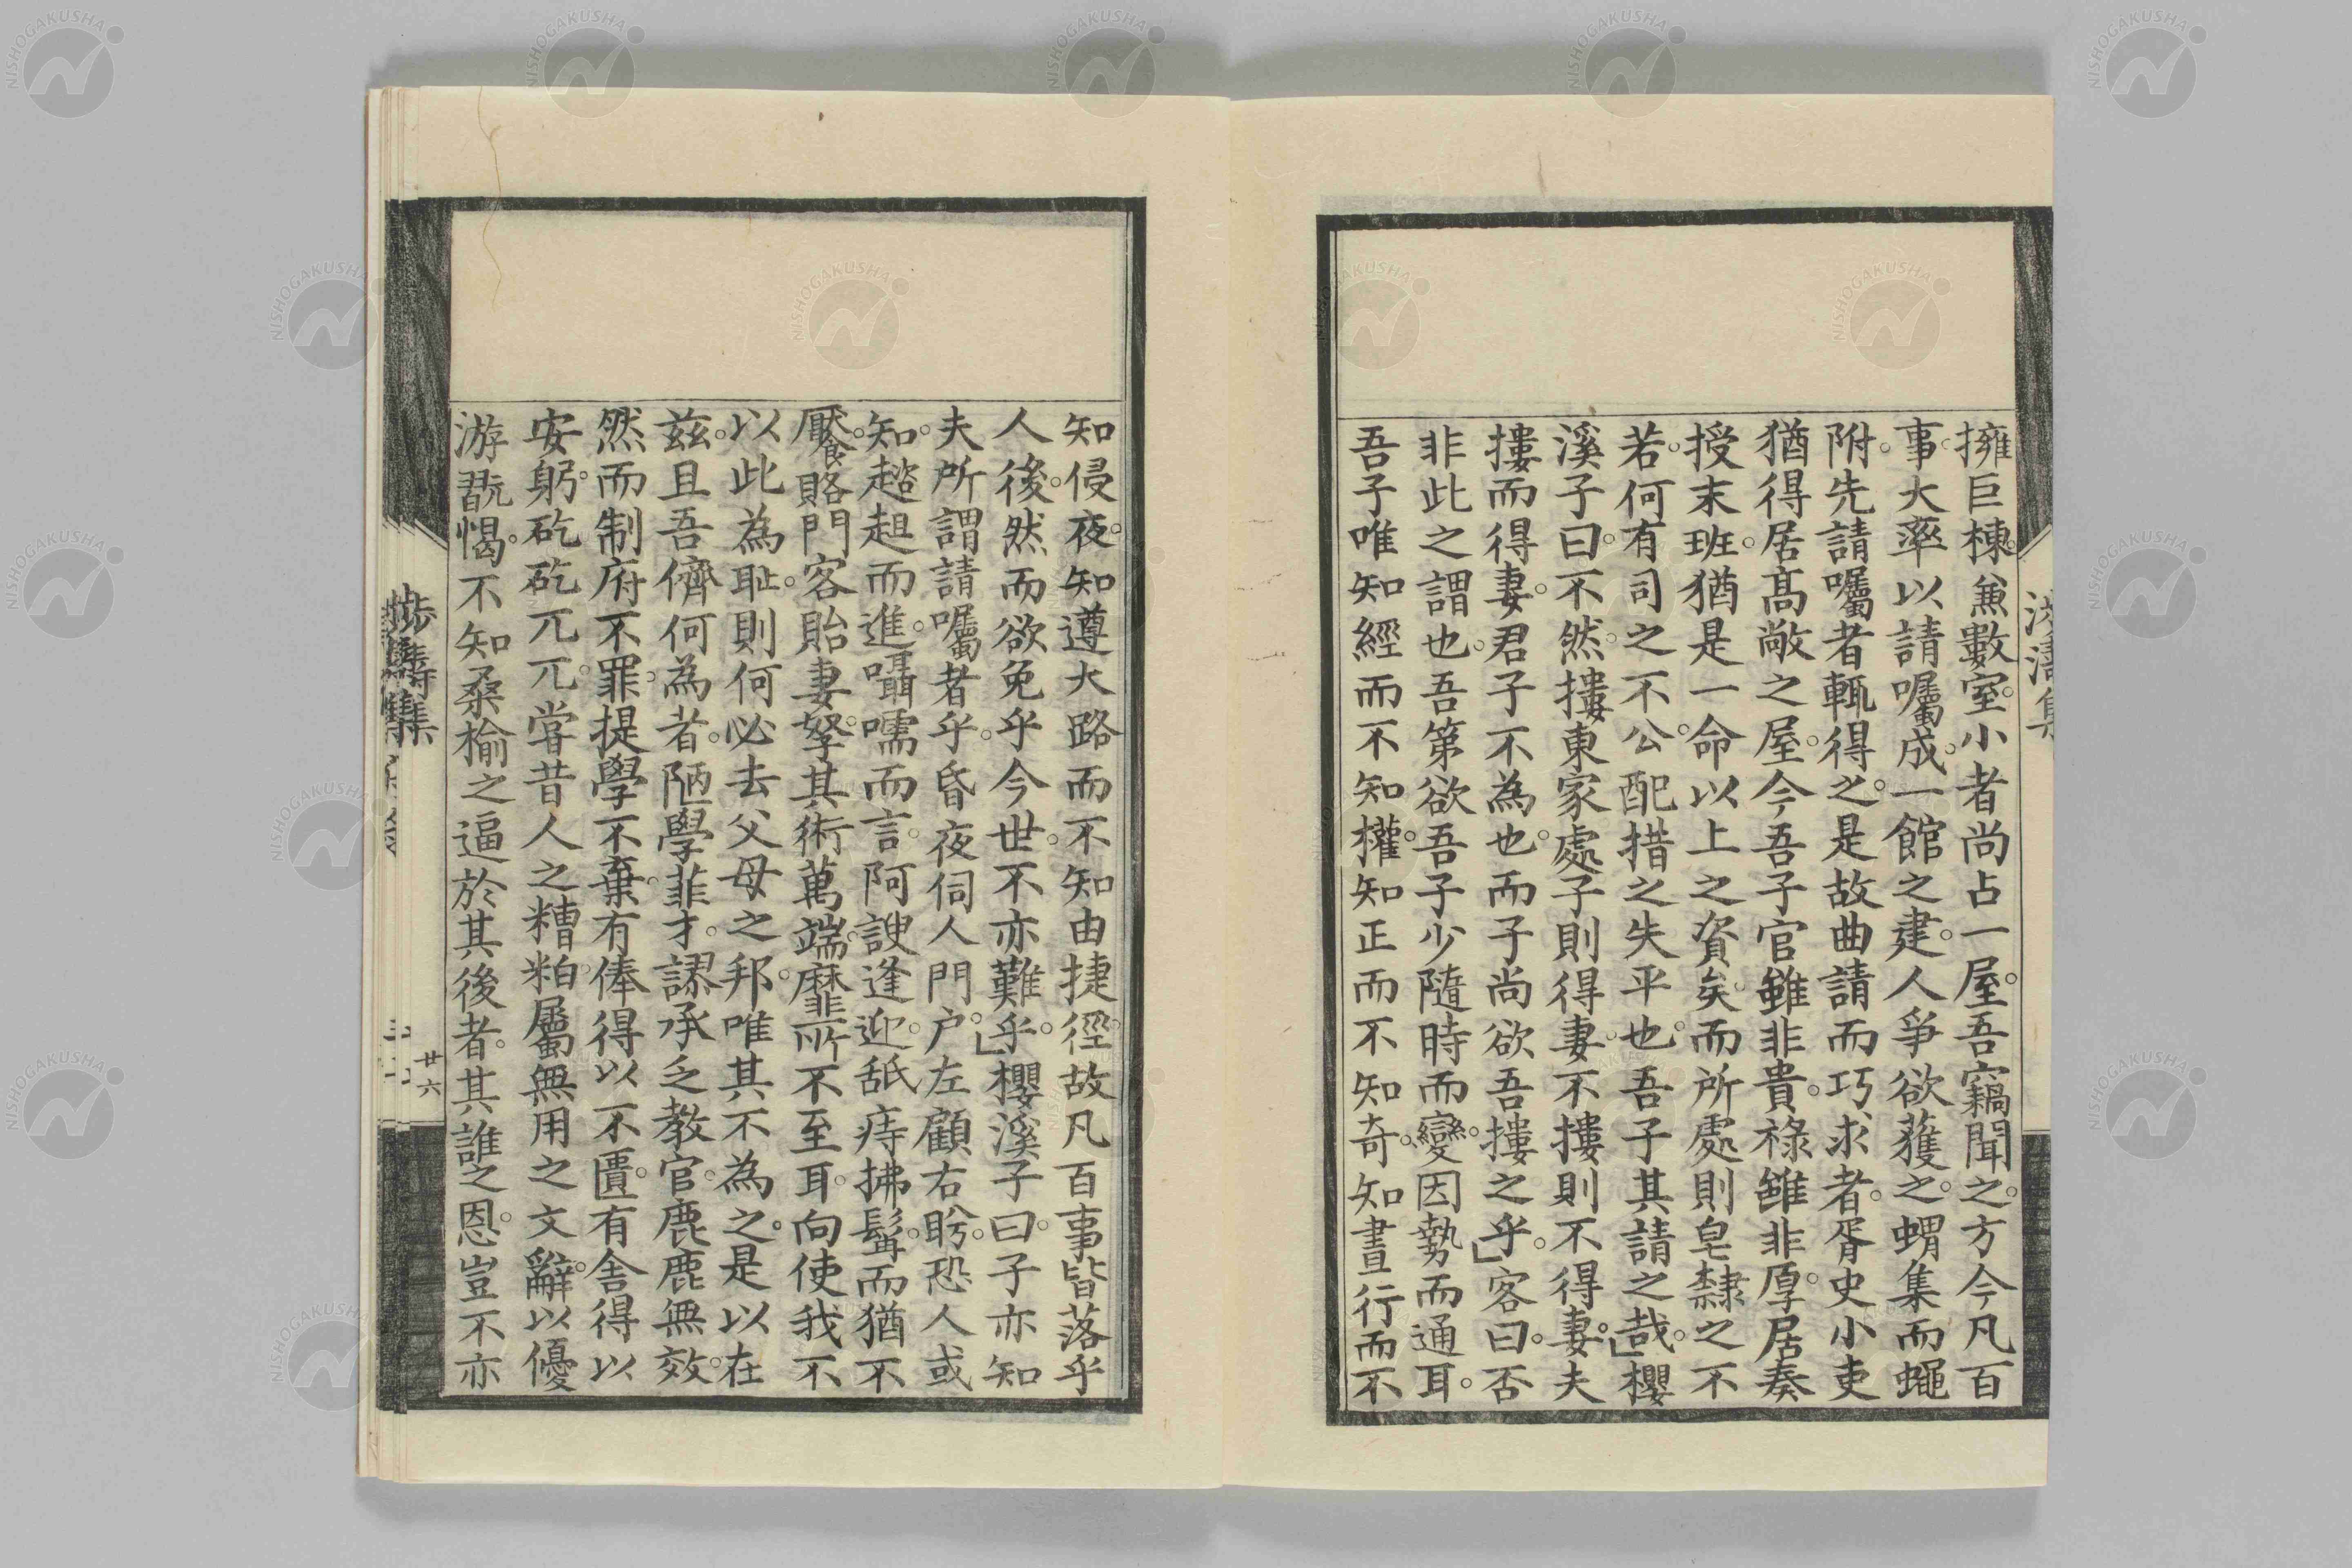 擁巨棟。兼數室。小者尚占一屋。吾竊聞之。方今凡百
事。大率以請囑成。一館之建。人爭欲獲之。蝟集而蠅
附。先請囑者輒得之。是故曲請而巧求者。胥史小吏
猶得居髙敞之屋。今吾子官雖非貴。祿雖非厚。居奏
授末班。猶是一命以上之資矣。而所處則皂隸之不
若。何有司之不公。配措之失平也。吾子其請之哉。」櫻
溪子曰。不然。摟東家處子則得妻。不摟則不得妻。夫
摟而得妻。君子不為也。而子尚欲吾摟之乎。」客曰。否
非此之謂也。吾第欲吾子少隨時而變。因勢而通耳。
吾子唯知經而不知權。知正而不知奇。知晝行而不
知侵夜。知遵大路而不知由捷徑。故凡百事皆落乎
人後。然而欲免乎今世。不亦難乎。」櫻溪子曰。子亦知
夫所謂請囑者乎。昏夜伺人門户。左顧右盻。恐人或
知。趦趄而進。囁嚅而言。阿諛逢迎。舐痔拂髯。而猶不
饜。賂門客。貽妻孥。其術萬端。靡所不至耳。向使我不
以此為耻。則何必去父母之邦。唯其不為之。是以在
茲。且吾儕何為者。陋學菲才。謬承乏教官。鹿鹿無效。
然而制府不罪。提學不棄。有俸得以不匱。有舍得以
安躬。矻矻兀兀。嘗昔人之糟粕。屬無用之文辭。以優
游翫愒。不知桑榆之逼於其後者。其誰之恩。豈不亦
廿六
NISHOGAKUSHA